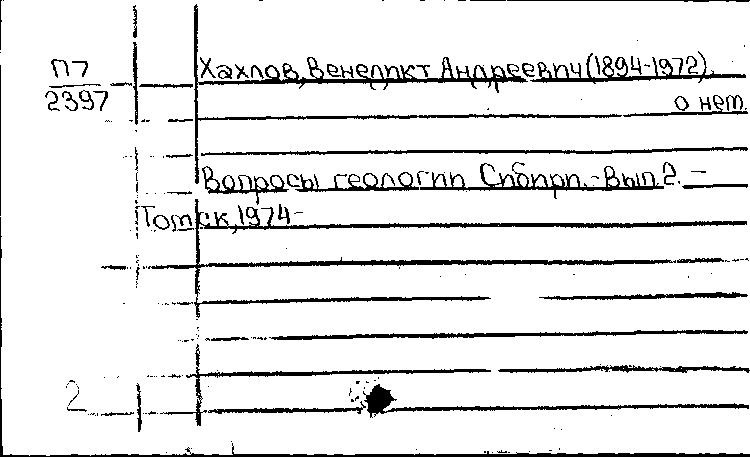 П7
2397
Хахлов, Венедикт Андреевич (1894-1972).
о нем.
Вопросы геологии Сибири.-Вып.2. –
Томск, 1974-
2